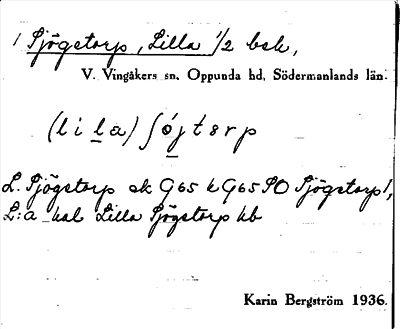 1 Sjögstorp, Lilla 1/2 bsk,
V. Vingåkers sn. Oppunda hd. Södermanlands län.
(lila) ʃójtorp
L. Sjögstorp ek G65 k G65 SO Sjögstorp 1,
L:a kal Lilla Sjögstorp hb
Karin Bergström 1936.